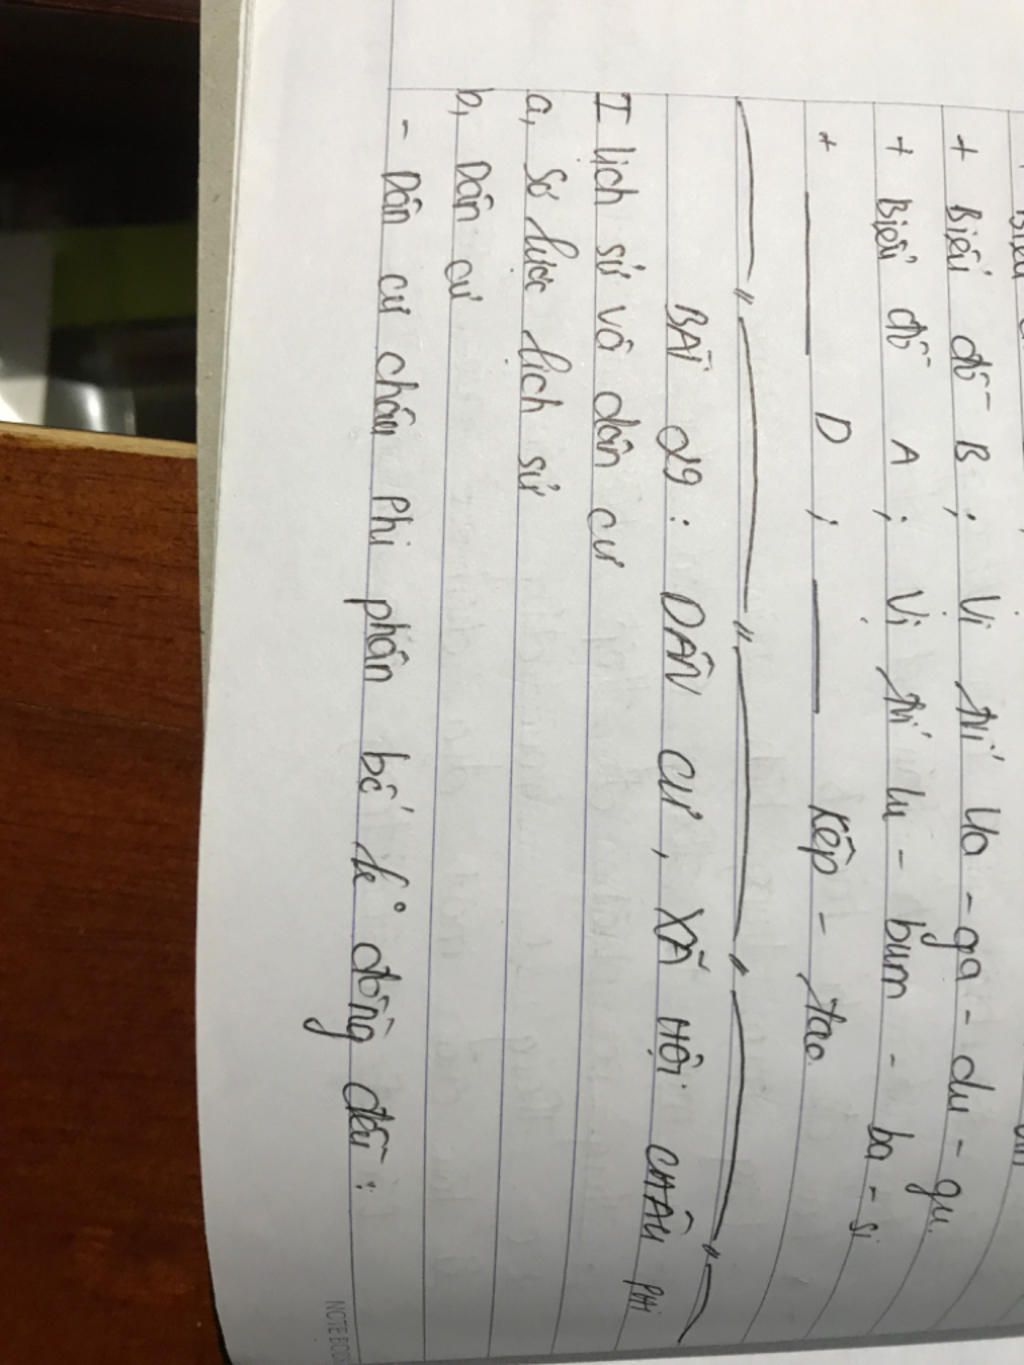 + Biểu đồ B ; Vị trí Ua - ga - du - gu.
+ Biểu đồ A ; Vị trí lu - bum - ba - si
+ —— D ; —— Kêp - tao.
BÀI 29 : DÂN CƯ , XÃ HỘI CHÂU PHI
I lịch sử và dân cư
a, Sơ lược lịch sử
b, Dân cư
- Dân cư châu Phi phân bố k° đồng đều :
NOTE BOOK